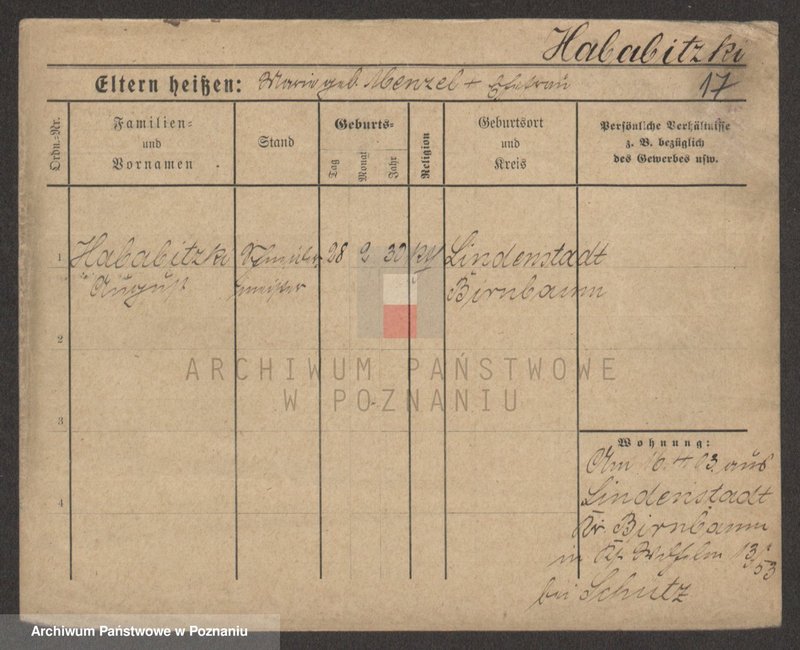 Hababitzki
17
Eltern heißen: Marie geb. Menzel + Ehefrau
Ordn.-Nr.
Familien-
und
Vornamen
Stand
Geburts-
Tag
Monat
Jahr
Religion
Geburtsort
und
Kreis
Persönliche Verhältnisse
z. B. bezüglich
des Gewerbes usw.
1
Hababitzki
August
28 2 30
Lindenstadt
Birnbaum
2
ARCHIWUM PAŃSTWOWE
W POZNANIU
3
Wohnung:
Am 16. 4 03 aus
Lindenstadt
Kr. Birnbaum
4
in Wilhelm
bei Schutz
Archiwum Państwowe w Poznaniu